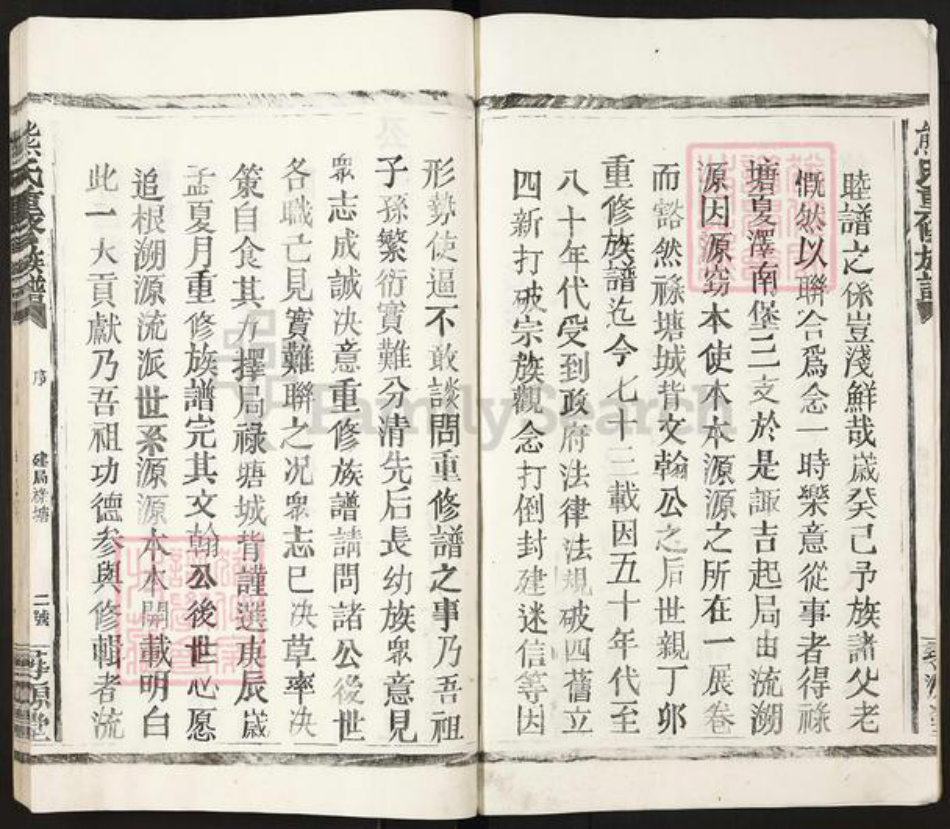 睦譜之係豈淺鮮哉歲癸己予族諸父老
慨然以聯合爲念一時樂意從事者得祿
塘夏澤南堡三支於是諏吉起局由流溯
源因源窮本使本本源源之所在一展卷
而豁然祿塘城背文翰公之后世親丁卯
重修族譜迄今七十三載因五十年代至
八十年代受到政府法律法規破四舊立
四新打破宗族觀念打倒封建迷信等因
形勢使逼不敢談問重修譜之事乃吾祖
子孫繁衍實難分清先后長幼族衆意見
衆志成誠决意重修族譜請問諸公後世
各職己見實難聯之况衆志巳决草率决
策自食其力擇局祿塘城背謹選庚辰歲
孟夏月重修族譜完其文翰公後世心愿
追根溯源流派世系源源本本開載明白
此一大貢獻乃吾祖功德參與修輯者流
熊氏重修族譜
序
建局祿塘
二號
熊氏重修族譜
FamilySearch